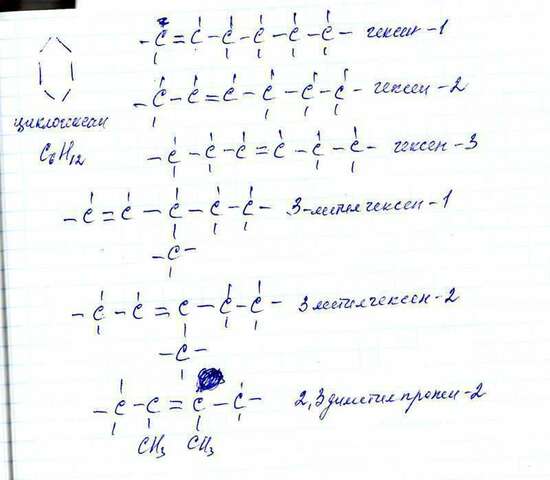 - C = C - C - C - C - C - гексен-1
- C - C = C - C - C - C - гексен-2
циклогексан
C₆H₁₂
- C - C - C = C - C - C - гексен-3
- C = C - C - C - C - 3-метилгексен-1
- C -
- C - C = C - C - C - 3метилгексен-2
- C -
- C - C = C - C - 2,3диметилпропен-2
CH₃ CH₃